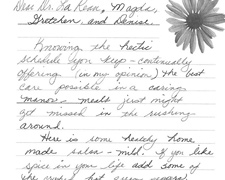 Dear Dr. La Rean, Magda,
Gretchen and Denise.
Knowing the hectic
schedule you keep - continually
offering (in my opinion) the best
care possible in a caring
manor meals just might
get missed in the rushing
around.
Here is some healthy home
made salsa - mild. If you like
spice in your life add some of
the